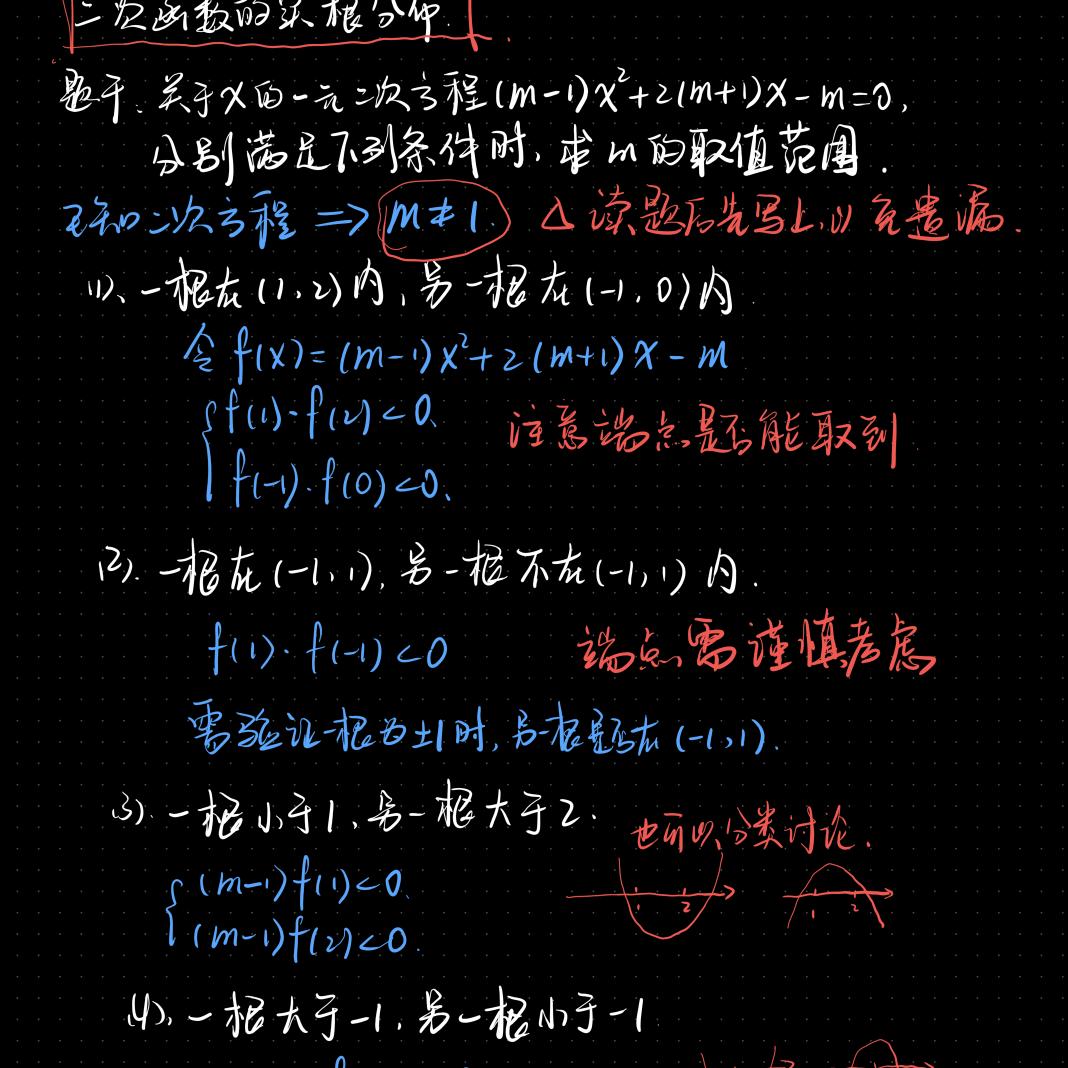 二次函数的实根分布.
题干、关于x的一元二次方程(m-1)x²+2(m+1)x-m=0,
分别满足下列条件时,求m的取值范围.
已知二次方程 ⇒ m≠1. △ 读题后先写上,以免遗漏.
(1)、一根在(1,2)内,另一根在(-1,0)内.
令 f(x)=(m-1)x²+2(m+1)x-m
{ f(1)·f(2)<0、 注意端点是否能取到
f(-1)·f(0)<0、
(2).一根在(-1,1),另一根不在(-1,1)内.
f(1)·f(-1)<0 端点需谨慎考虑
需验证一根为±1时,另一根是否在(-1,1).
(3).一根小于1,另一根大于2. 也可以分类讨论.
{ (m-1)f(1)<0. 1 2 1 2
(m-1)f(2)<0.
(4)、一根大于-1,另一根小于-1